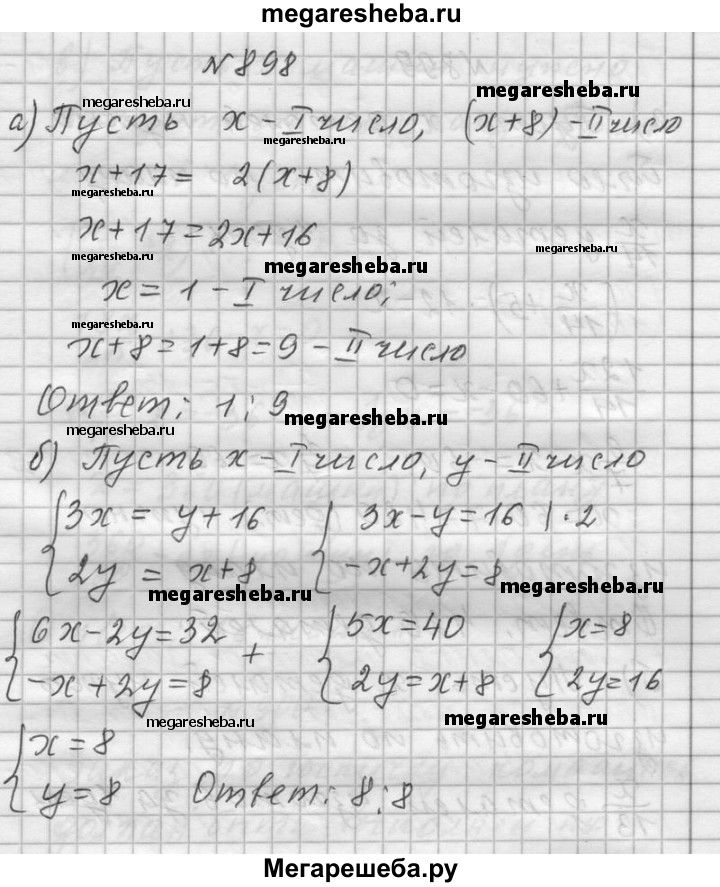 megaresheba.ru
№898
megaresheba.ru megaresheba.ru
а) Пусть x - I число, (x+8) - II число
megaresheba.ru
x+17 = 2(x+8)
megaresheba.ru
x+17=2x+16
megaresheba.ru
megaresheba.ru
x = 1 - I число;
megaresheba.ru
x+8=1+8=9 - II число
megaresheba.ru
Ответ: 1; 9
megaresheba.ru
megaresheba.ru
б) Пусть x - I число, y - II число
{3x = y+16 {3x-y=16 |·2
2y = x+8 -x+2y=8
megaresheba.ru megaresheba.ru
{6x-2y=32 + {5x=40 {x=8
-x+2y=8 2y=x+8 2y=16
megaresheba.ru megaresheba.ru
{x=8
y=8 Ответ: 8; 8
Мегарешеба.ру